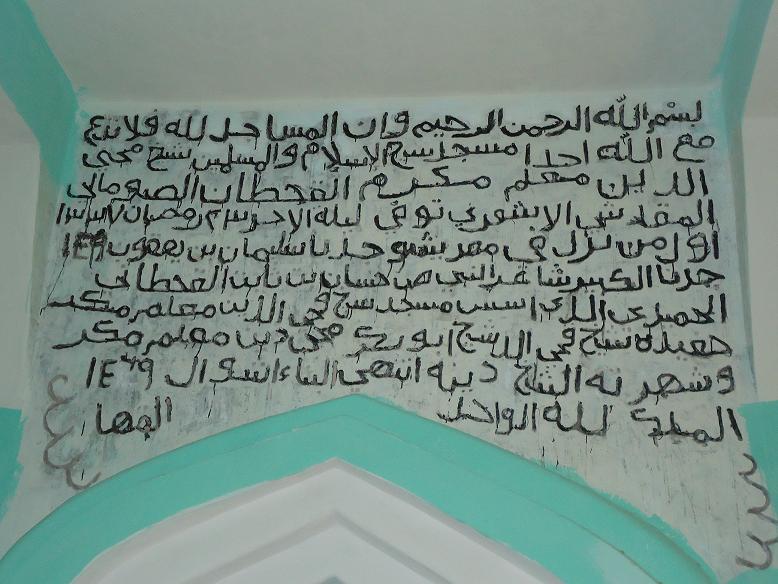 بسم الله الرحمن الرحيم وان المساجد لله فلا تدع
مع الله احدا مسجد شيخ الإسلام والمسلمين شيخ محيى
الدين معلم مكرم القحطان الصومالي
المقدشي الاشوري توفى ليلة الاحد رمضان
اول من نزل في مقدشو جدنا سليمان بن يعقوب ١٤٩
جدنا الكبير شاعر النبي ص حسان بن ثابت القحطاني
الحميري الذي اسس مسجد شيخ محي الدين معلم مكر
حفيده شيخ محي الد شيخ ابوبكر محي دين معلم مكر
وشهر به الشيخ دينه انتهى البناء شوال ١٤٢٩
الملك لله الواحد القهار